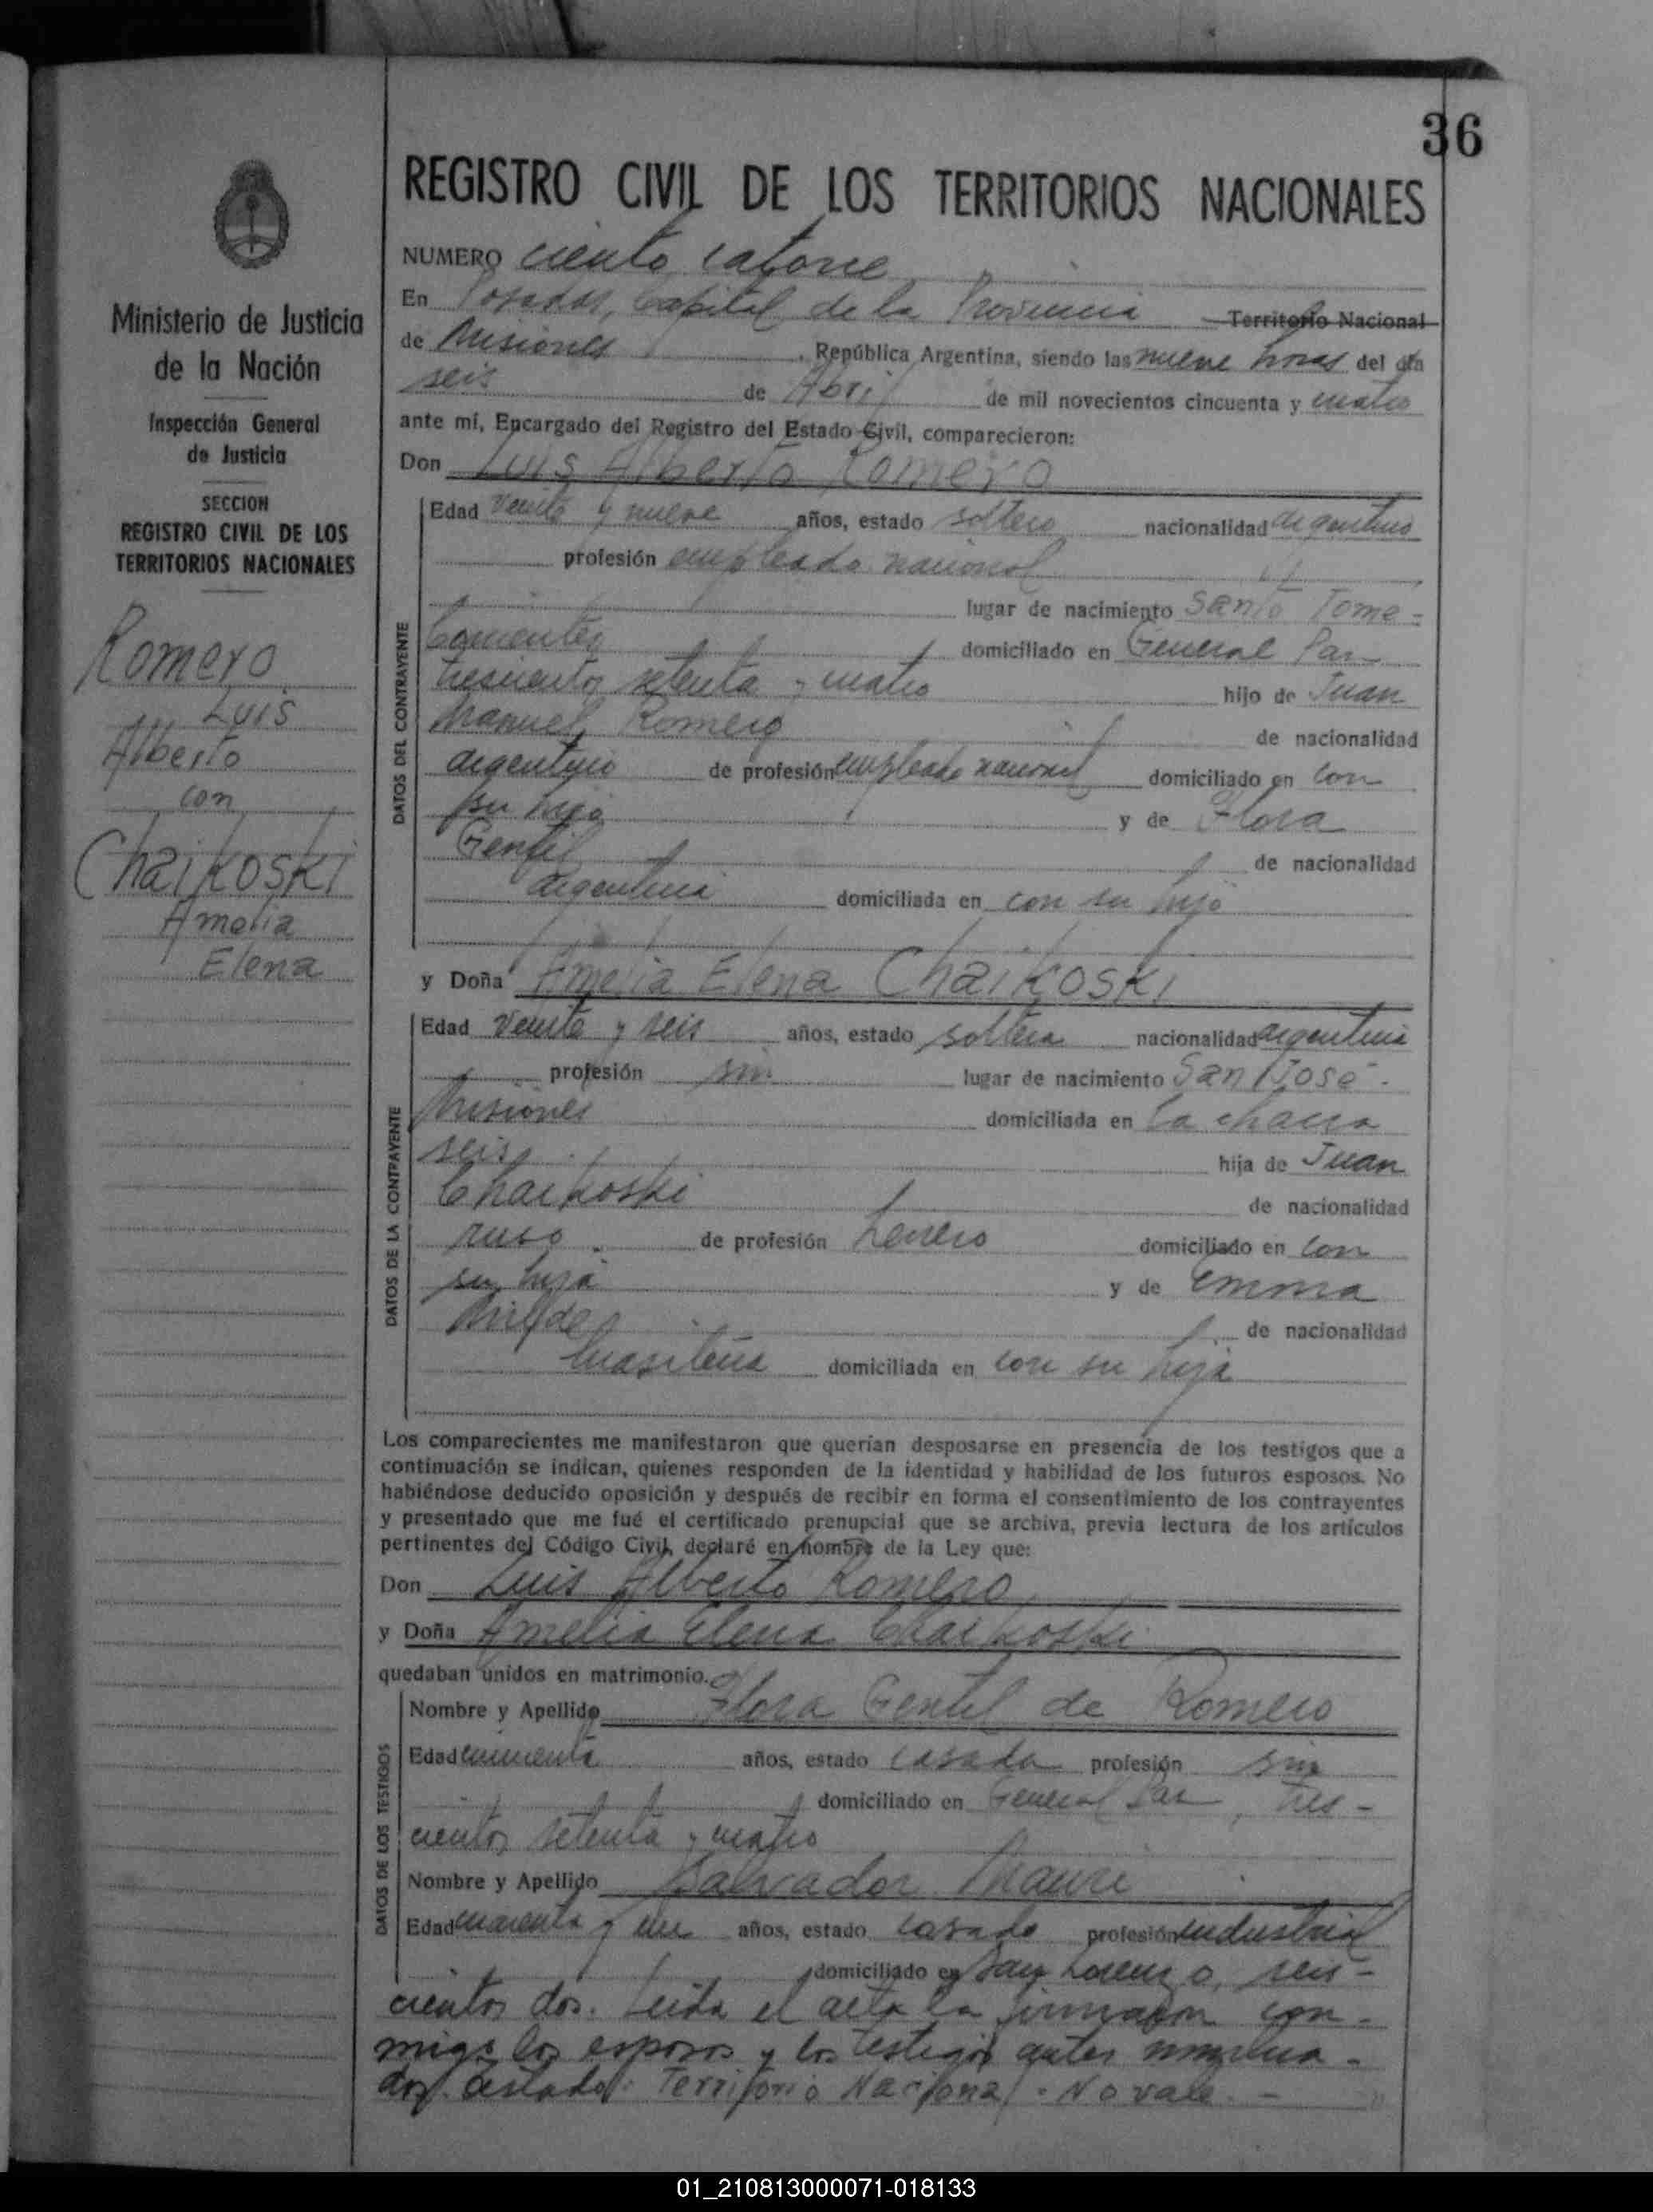 36
REGISTRO CIVIL DE LOS TERRITORIOS NACIONALES
Ministerio de Justicia
de la Nación
Inspección General
de Justicia
SECCION
REGISTRO CIVIL DE LOS
TERRITORIOS NACIONALES
Romero
Luis
Alberto
con
Chaikoski
Amelia
Elena
NUMERO ciento catorce
En Posadas, Capital de la Provincia Territorio Nacional
de Misiones, República Argentina, siendo las nueve horas del día
seis de Abril de mil novecientos cincuenta y cuatro
ante mí, Encargado del Registro del Estado Civil, comparecieron:
Don Luis Alberto Romero
DATOS DEL CONTRAYENTE
Edad veinte y nueve años, estado soltero nacionalidad argentino
profesión empleado nacional
lugar de nacimiento Santo Tome =
Corrientes domiciliado en General Paz
trescientos setenta y cuatro hijo de Juan
Manuel Romero de nacionalidad
argentino de profesión empleado nacional domiciliado en con
su hijo y de Flora
Gentil de nacionalidad
argentina domiciliada en con su hijo
y Doña Amelia Elena Chaikoski
DATOS DE LA CONTRAYENTE
Edad veinte y seis años, estado soltera nacionalidad argentina
profesión sin lugar de nacimiento San José -
Misiones domiciliada en la chacra
seis hija de Juan
Chaikoski de nacionalidad
ruso de profesión domiciliado en con
su hija y de Emma
de nacionalidad
brasileña domiciliada en con su hija
Los comparecientes me manifestaron que querían desposarse en presencia de los testigos que a
continuación se indican, quienes responden de la identidad y habilidad de los futuros esposos. No
habiéndose deducido oposición y después de recibir en forma el consentimiento de los contrayentes
y presentado que me fué el certificado prenupcial que se archiva, previa lectura de los artículos
pertinentes del Código Civil, declaré en nombre de la Ley que:
Don Luis Alberto Romero
y Doña Amelia Elena Chaikoski
quedaban unidos en matrimonio.
DATOS DE LOS TESTIGOS
Nombre y Apellido Flora Gentil de Romero
Edad cincuenta años, estado casada profesión sin
domiciliado en General Paz, tres-
cientos setenta y cuatro
Nombre y Apellido Salvador Mauri
Edad cuarenta y un años, estado casado profesión industrial
domiciliado en San Lorenzo, seis-
cientos dos. Leida el acta la firmaron con-
migo los esposos y los testigos antes nombra-
dos. testado: Territorio Nacional - No vale. -
01_210813000071-018133